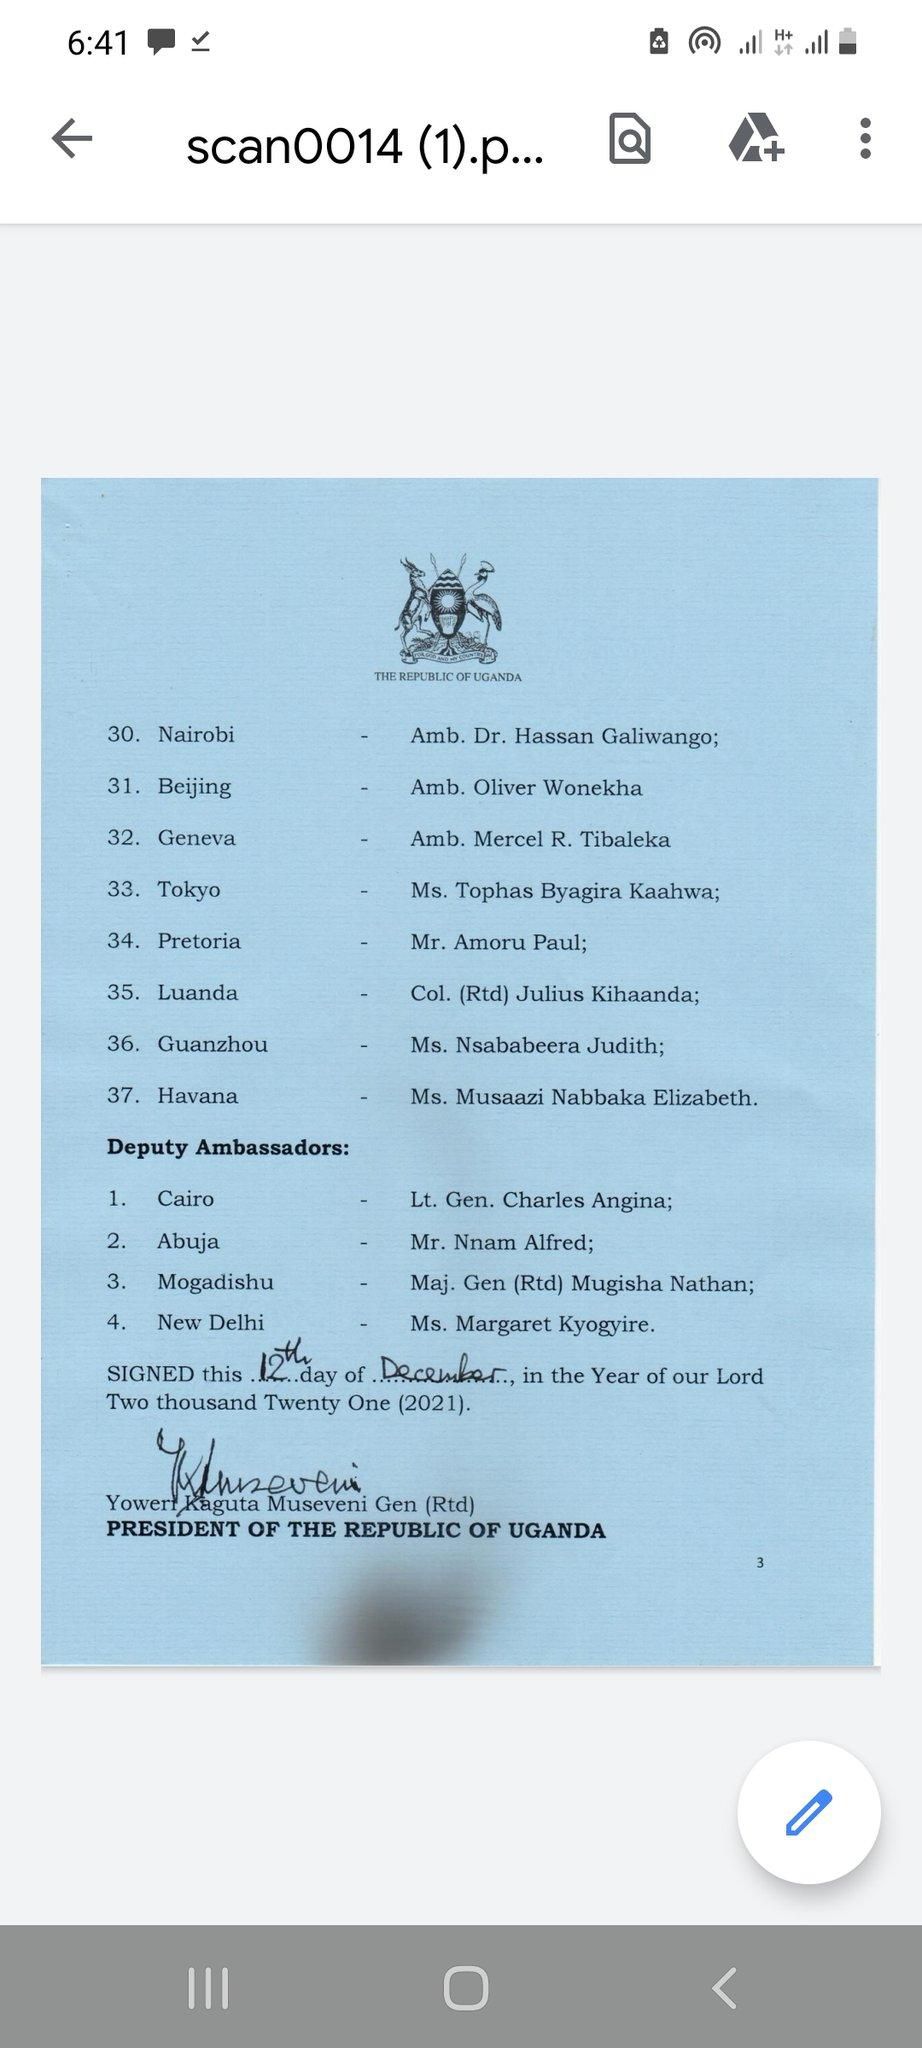 6:41
H+
scan0014 (1).p...
FOR GOD AND MY COUNTRY
THE REPUBLIC OF UGANDA
30. Nairobi - Amb. Dr. Hassan Galiwango;
31. Beijing - Amb. Oliver Wonekha
32. Geneva - Amb. Mercel R. Tibaleka
33. Tokyo - Ms. Tophas Byagira Kaahwa;
34. Pretoria - Mr. Amoru Paul;
35. Luanda - Col. (Rtd) Julius Kihaanda;
36. Guanzhou - Ms. Nsababeera Judith;
37. Havana - Ms. Musaazi Nabbaka Elizabeth.
Deputy Ambassadors:
1. Cairo - Lt. Gen. Charles Angina;
2. Abuja - Mr. Nnam Alfred;
3. Mogadishu - Maj. Gen (Rtd) Mugisha Nathan;
4. New Delhi - Ms. Margaret Kyogyire.
SIGNED this 12th day of December, in the Year of our Lord
Two thousand Twenty One (2021).
YKMuseveni
Yoweri Kaguta Museveni Gen (Rtd)
PRESIDENT OF THE REPUBLIC OF UGANDA
3